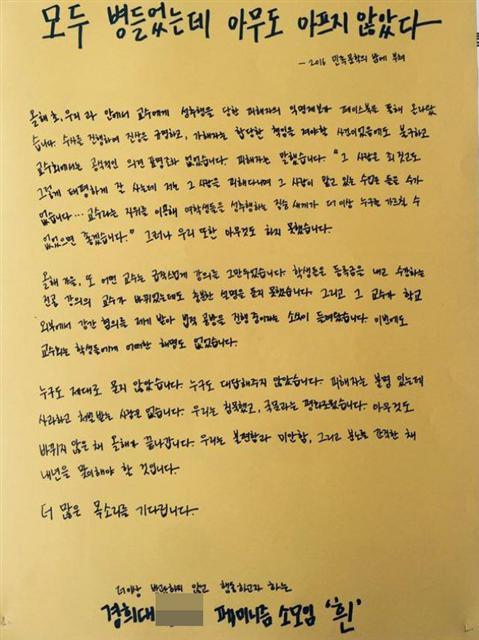 모두 병들었는데 아무도 아프지 않았다
- 2016 민족문학의 밤에 부쳐
올해 초, 우리 과 안에서 교수에게 성추행을 당한 피해자의 익명제보가 페이스북을 통해 올라왔
습니다. 수사를 진행하여 진상을 규명하고, 가해자는 합당한 책임을 져야할 사건이었음에도 불구하고
교수회에서는 공식적인 의견 표명조차 없었습니다. 피해자는 말했습니다. "그 사람은 죄짓고도
그렇게 태평하게 잘 사는데 저는 그 사람을 피해다니며 그 사람이 맡고 있는 수업은 들을 수가
없습니다... 교수라는 지위를 이용해 여학생들을 성추행하는 짐승새끼가 더 이상 누구를 가르칠 수
없었으면 좋겠습니다." 그러나 우리 또한 아무것도 하지 못했습니다.
올해 가을, 또 어떤 교수는 급작스럽게 강의를 그만두었습니다. 학생들은 등록금을 내고 수강하는
전공 강의의 교수가 바뀌었는데도 충분한 설명을 듣지 못했습니다. 그리고 그 교수가 학교
외부에서 강간 혐의를 제기 받아 법적 공방을 진행 중이라는 소식이 들려왔습니다. 이번에도
교수회는 학생들에게 어떠한 해명도 없었습니다.
누구도 제대로 묻지 않았습니다. 누구도 대답해주지 않았습니다. 피해자는 분명 있는데
사과하고 처벌받는 사람은 없습니다. 우리는 침묵했고, 국문과는 평화로웠습니다. 아무것도
바뀌지 않은 채 올해가 끝나갑니다. 우리는 불편함과 미안함, 그리고 분노를 간직한 채
내년을 맞이해야 할 것입니다.
더 많은 목소리를 기다립니다.
더이상 방관하지 않고 행동하고자 하는
경희대 페미니즘 소모임 '흰'